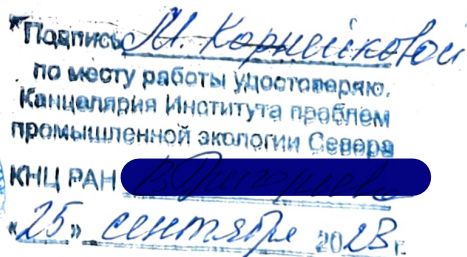 Подпись М. Корнейковой
по месту работы удостоверяю.
Канцелярия Института проблем
промышленной экологии Севера
КНЦ РАН
«25» сентября 2023 г.